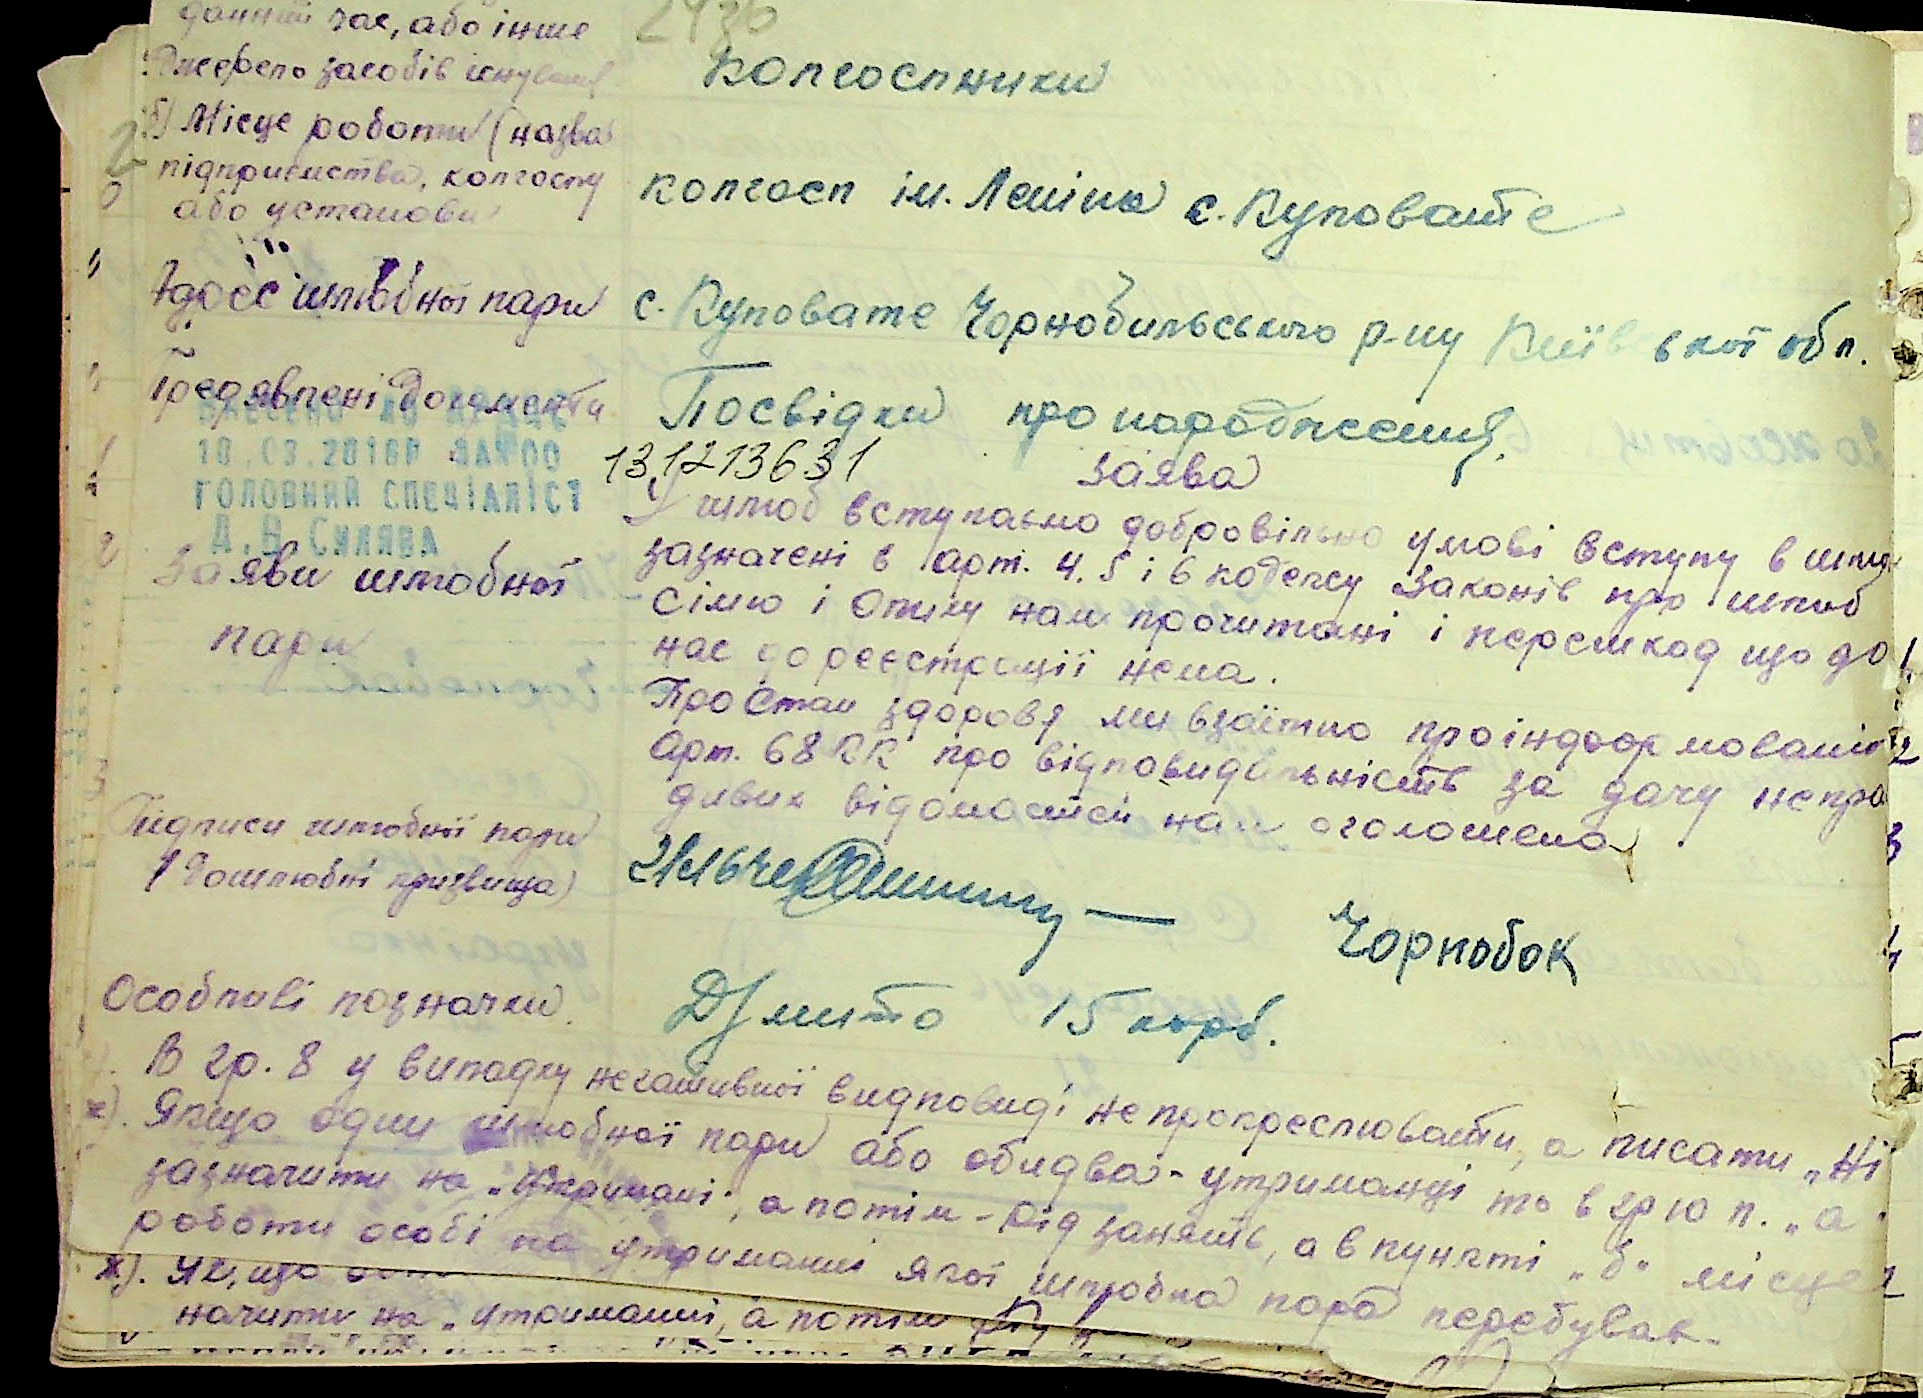 данний час, або інше
2436
джерело засобів існування
Колгоспники
б) Місце роботи (назва
підприємства, колгоспу
або установи
колгосп ім. Леніна с. Куповате
Адрес шлюбної пари
с. Куповате Чорнобильського р-ну Київської обл.
Предявлені документи
Посвідки про народження.
18.03.2016р
ГОЛОВНИЙ СПЕЦІАЛІСТ
Д.В. Сулява
131213631
Заява
Заяви шлюбної
пари
У шлюб вступаємо добровільно умові вступу в шлюб
зазначені в арт. 4. 5 і 6 кодексу Законів про шлюб
сімю і опіку нам прочитані і перешкод що до
нас до реєстрації нема.
Про стан здоровя ми взаїмно проінформовані
Арт. 68 КК про відповидальність за дачу непра
дивих відомостей нам оголошено
Підписи шлюбної пари
(Дошлюбні призвища)
Чорнобок
Особливі позначки.
Д/мито 15 карб.
В гр. 8 у випадку негативної видповиді не прокреслювати, а писати „Ні
х). Якщо один шлюбної пари або обидва - утриманці то в гр 10 п. „а"
зазначити на „Утримані", а потім - рід занять, а в пункті „б" місце
роботи особі на утриманні якої шлюбна пара перебував.
х). Як, що
начити на „утриманні, а потім рід